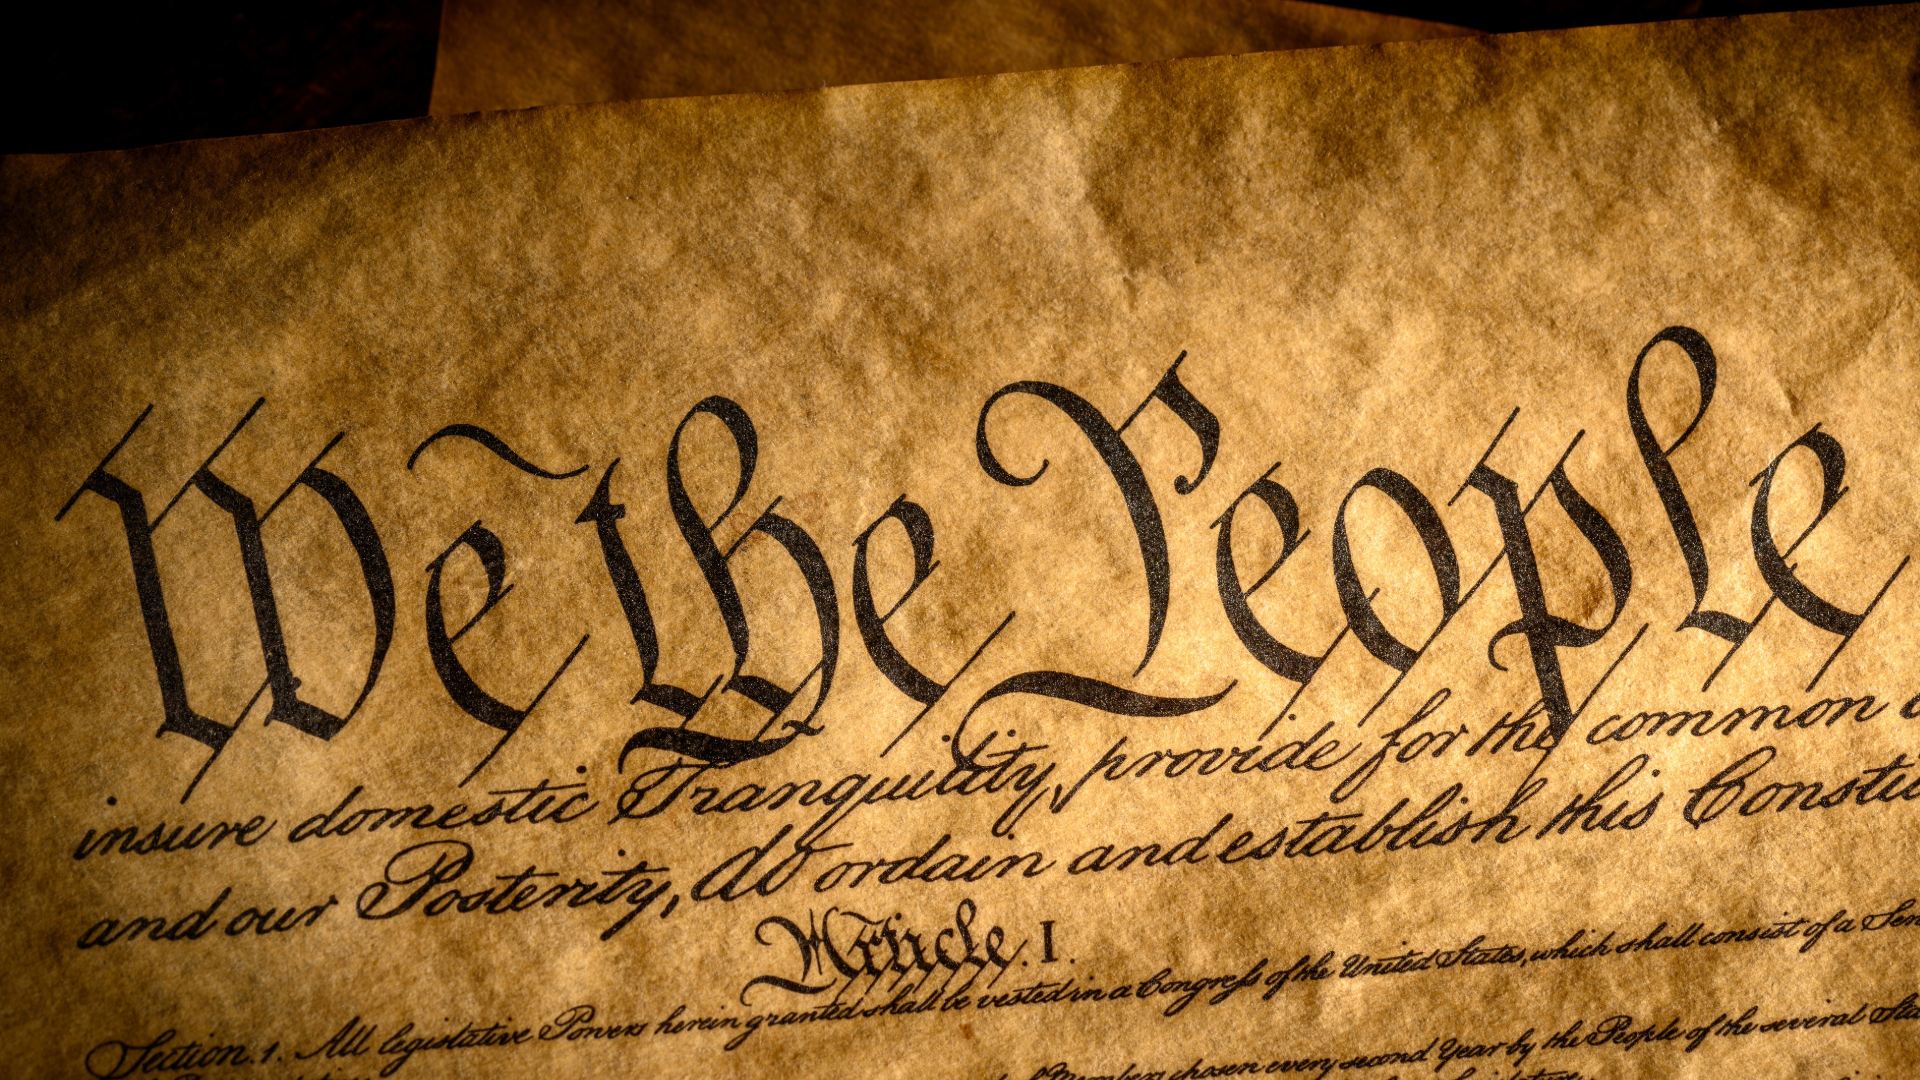 We the People
insure domestic Tranquility, provide for the common
and our Posterity, do ordain and establish this Constitu
Article. I.
Section. 1. All legislative Powers herein granted shall be vested in a Congreſs of the United States, which shall consist of a Sen
Members chosen every second Year by the People of the several Sta